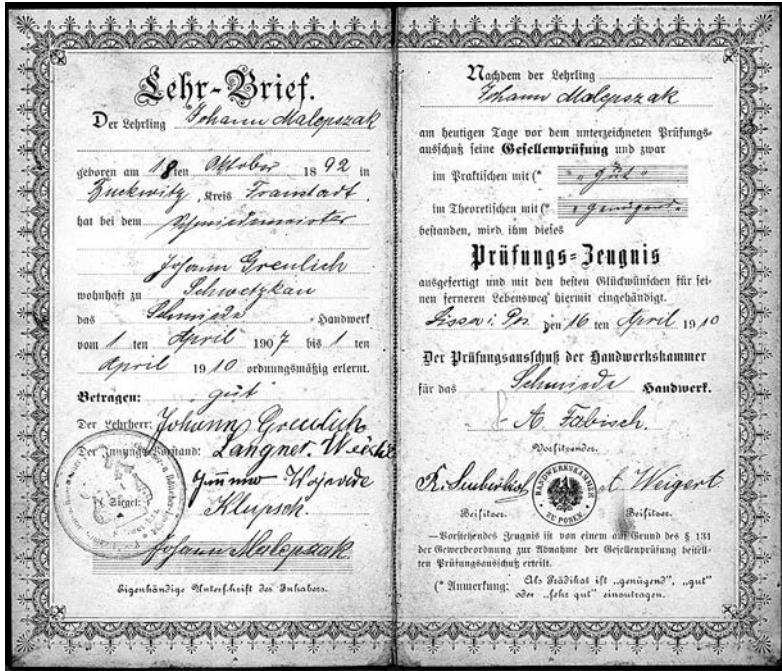 Lehr-Brief.
Der Lehrling Johann Malepszak
geboren am 18ten Oktober 1892 in
Zuckwitz, Kreis Fraustadt,
hat bei dem Schmiedemeister
Johann Greulich
wohnhaft zu Schwetzkau
das Schmiede Handwerk
vom 1 ten April 1907 bis 1 ten
April 1910 ordnungsmäßig erlernt.
Betragen: gut
Der Lehrherr: Johann Greulich
Der Innungs-Vorstand: Langner.
Siegel:
Klupsch.
Johann Malepszak
Eigenhändige Unterschrift des Inhabers.
Nachdem der Lehrling
Johann Malepszak
am heutigen Tage vor dem unterzeichneten Prüfungs-
ausschuß seine Gesellenprüfung und zwar
im Praktischen mit (* "gut"
im Theoretischen mit (* "genügend"
bestanden, wird ihm dieses
Prüfungs-Zeugnis
ausgefertigt und mit den besten Glückwünschen für sei-
nen ferneren Lebensweg hiermit eingehändigt.
Lissa i. Pos. den 16 ten April 1910
Der Prüfungsausschuß der Handwerkskammer
für das Schmiede Handwerk.
A. Fabisch.
Vorsitzender.
HANDWERKSKAMMER ZU POSEN.
A. Weigert
Beisitzer. Beisitzer.
—Vorstehendes Zeugnis ist von einem auf Grund des § 131
der Gewerbeordnung zur Abnahme der Gesellenprüfung bestell-
ten Prüfungsausschuß erteilt.
(* Anmerkung: Als Prädikat ist „genügend", „gut"
oder „sehr gut" einzutragen.